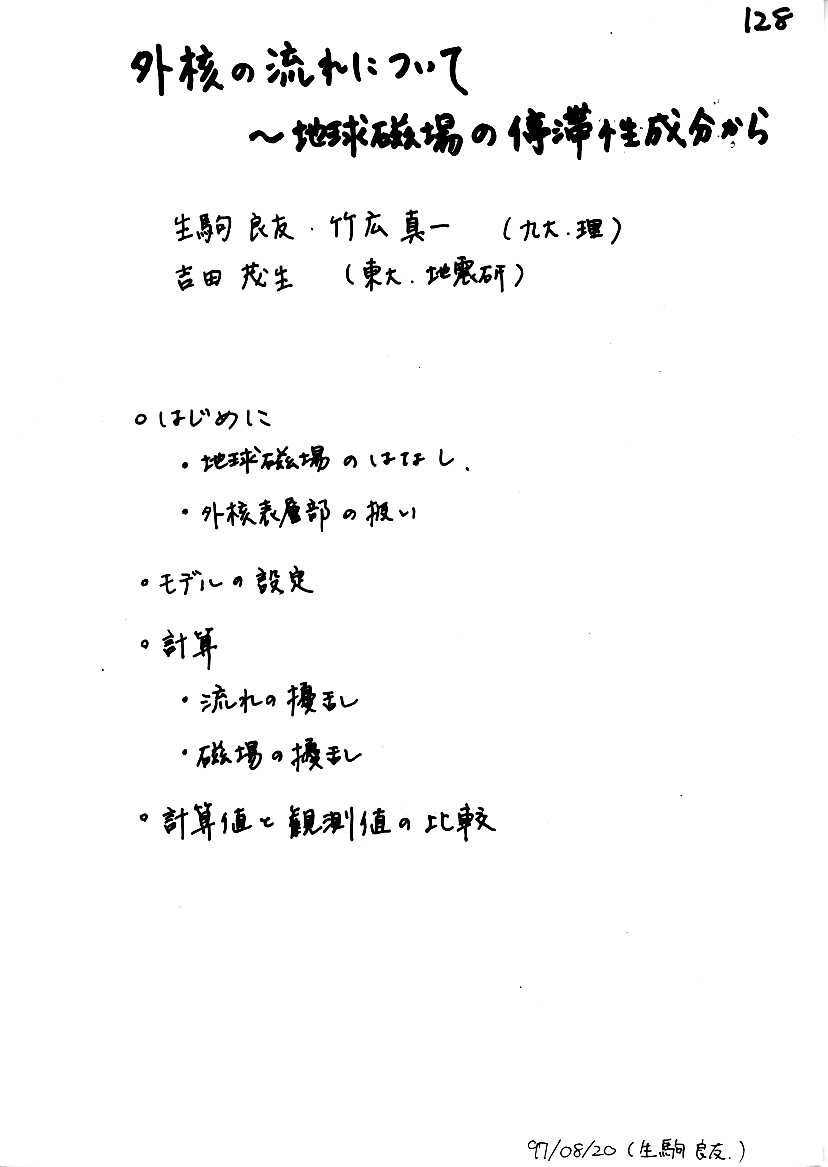 128
外核の流れについて
～地球磁場の停滞性成分から
生駒 良友・竹広 真一 (九大・理)
吉田 茂生 (東大・地震研)
○はじめに
・地球磁場のはなし.
・外核表層部の扱い
○モデルの設定
○計算
・流れの擾乱
・磁場の擾乱
○計算値と観測値の比較
97/08/20 (生駒 良友.)